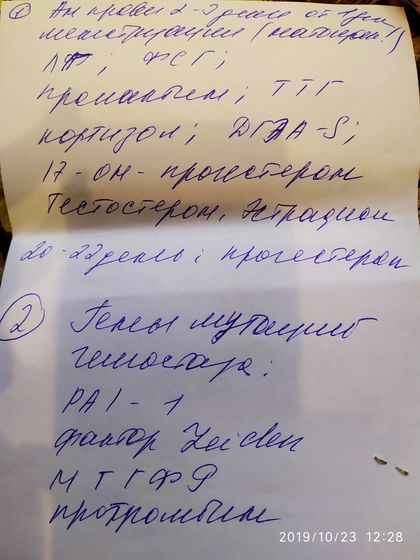 ① Ан крови 2-3 день от 1 дня
менструации (натощак!)
ЛГ; ФСГ;
пролактин; ТТГ
кортизол; ДГЭА-S;
17-он-прогестерон
Тестостерон, Эстрадиол
20-22 день: прогестерон
② Гены мутаций
гемостаза:
PAI-1
фактор Leiden
МТГФР
протромбин
2019/10/23 12:28